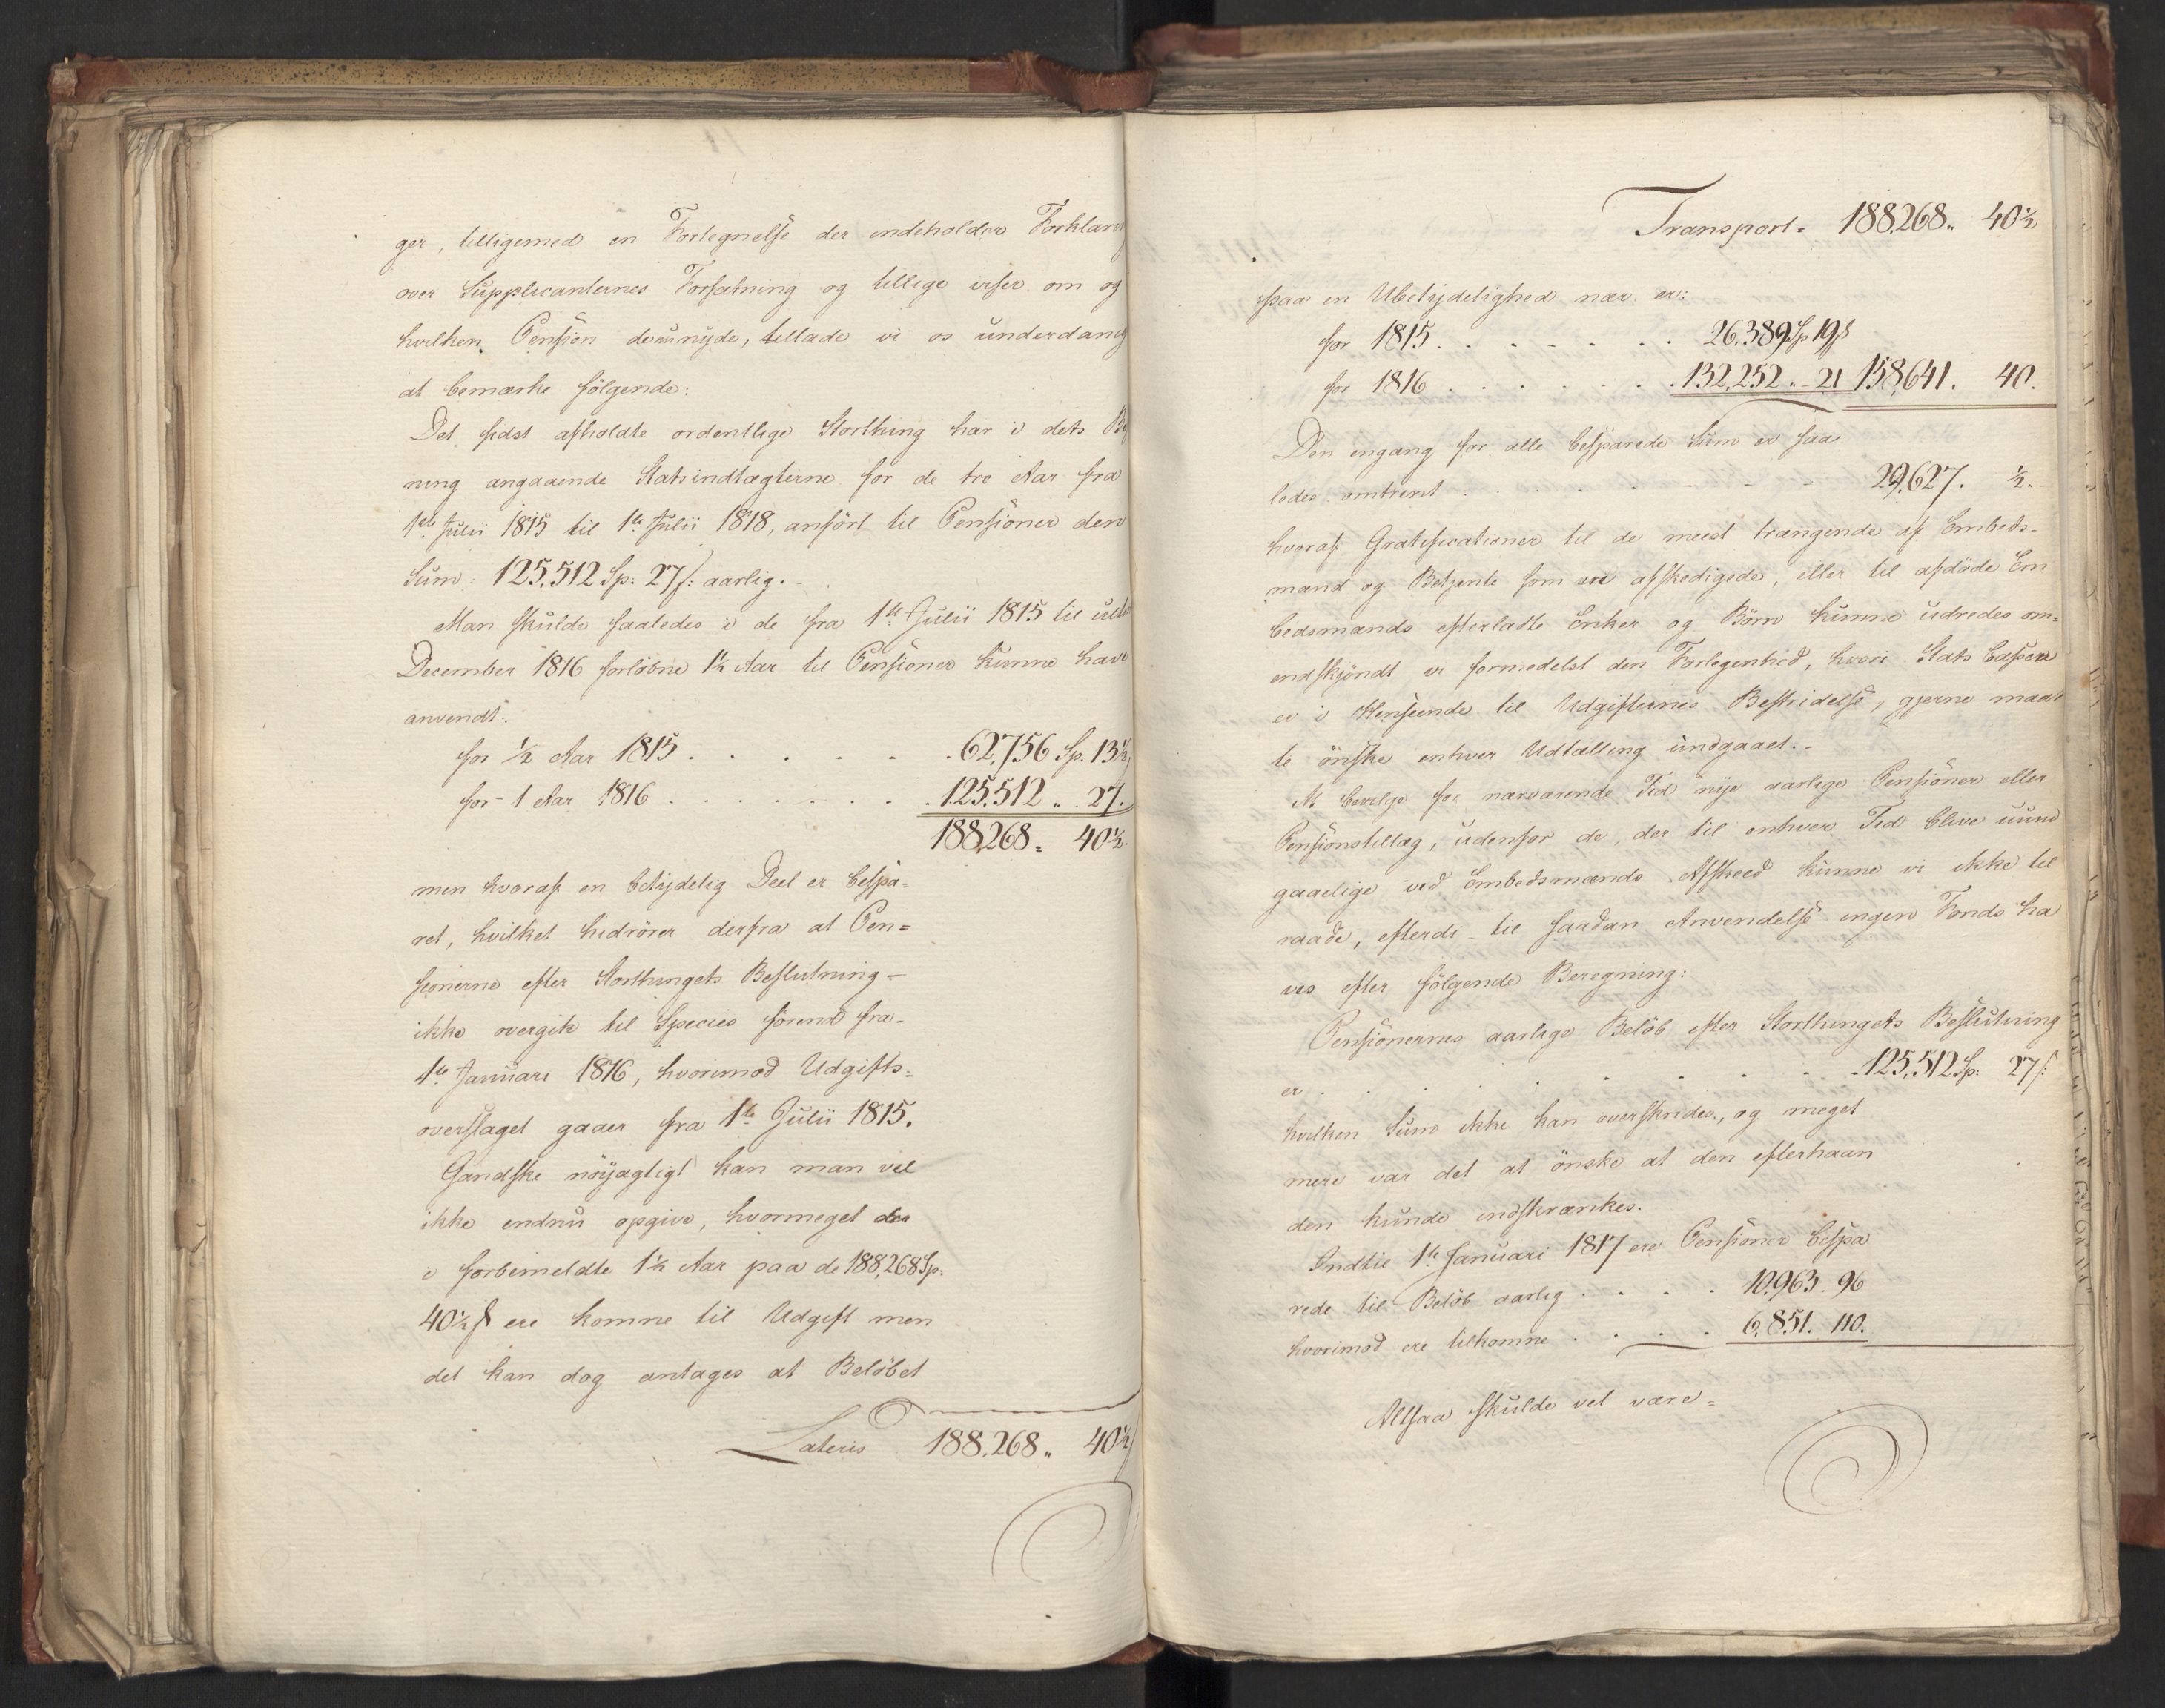 ger, tilligemed en Fortegnelse der indeholder Forklaring
over Supplicanternes Forfatning og tillige viser om og
hvilken Pension de nu nyde, tillade vi os underdanig
at bemærke følgende:
Det sidst afholdte ordentlige Storthing har i dets Be
ning angaaende Statsindtægterne for de tre Aar fra
1ste Julii 1815 til 1ste Julii 1818, anført til Pensioner den
Sum: 125,512 Sp: 27 s: aarlig.
Man skulde saaledes i de fra 1ste Julii 1815 til ult
December 1816 forløbne 1½ Aar til Pensioner kunne have
anvendt:
for ½ Aar 1815 . . . . . . 62,756 Sp. 13½
for 1 Aar 1816 . . . . . . . 125,512 " 27.
188,268 " 40½.
men hvoraf en betydelig Deel er bespa-
ret, hvilket hidrører derfra at Pen-
sionerne efter Storthingets Beslutning
ikke overgik til Species førend fra
1ste Januari 1816, hvorimod Udgifts-
overslaget gaaer fra 1ste Julii 1815.
Gandske nøyagtigt kan man vel
ikke endnu opgive, hvormeget der
i forbemeldte 1½ Aar paa de 188,268 Sp:
40½ s ere komne til Udgift men
det kan dog antages at Beløbet
Lateris 188,268 " 40½
Transport. 188,268 " 40½
paa en Ubetydelighed nær er:
for 1815 . . . . . . . 26,389 Sp 19 s
for 1816 . . . . . . . 132,252 " 21 158,641. 40.
Den engang for alle besparede Sum er saa
ledes omtrent . . . . . . . 29,627. ½.
hvoraf Gratificationer til de meest trængende af Embeds-
mænd og Betjente som ere afskedigede, eller til afdøde Em
bedsmænds efterladte Enker og Børn kunne udredes om-
endskjøndt vi formedelst den Forlegenhed, hvori Stats Cassen
er i Henseende til Udgifternes Bestridelse, gjerne maat
te ønske enhver Udtælling undgaaet.
At bevilge for nærværende Tid nye aarlige Pensioner eller
Pensionstillæg, udenfor de, der til enhver Tid blive uund
gaaelige ved Embedsmænds Afskeed kunne vi ikke til
raade, efterdi til saadan Anvendelse ingen Fonds ha
ves efter følgende Beregning:
Pensionernes aarlige Beløb efter Storthingets Beslutning
er . . . . . . . 125,512 Sp: 27 s:
hvilken Sum ikke kan overskrides, og meget
mere var det at ønske at den efterhaan
den kunde indskrænkes.
Indtil 1ste Januari 1817 ere Pensioner bespa
rede til Beløb aarlig . . . . 10,963. 96
hvorimod ere tilkomne . . . . 6,851. 110.
Altsaa skulde vel være